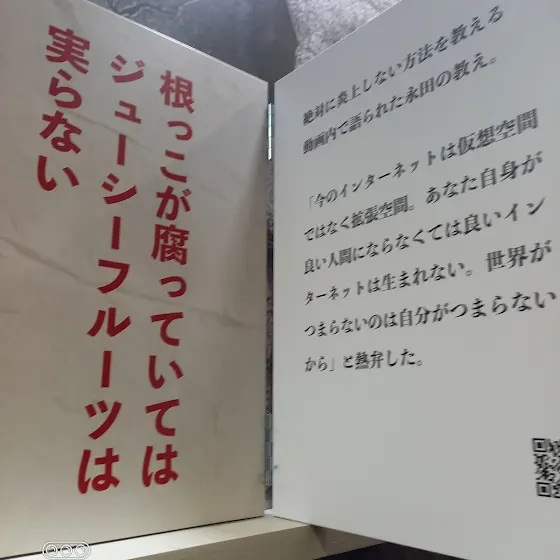 根っこが腐っていては
ジューシーフルーツは
実らない
絶対に炎上しない方法を教える
動画内で語られた永田の教え。
「今のインターネットは仮想空間
ではなく拡張空間。あなた自身が
良い人間にならなくては良いイン
ターネットは生まれない。世界が
つまらないのは自分がつまらない
から」と熱弁した。